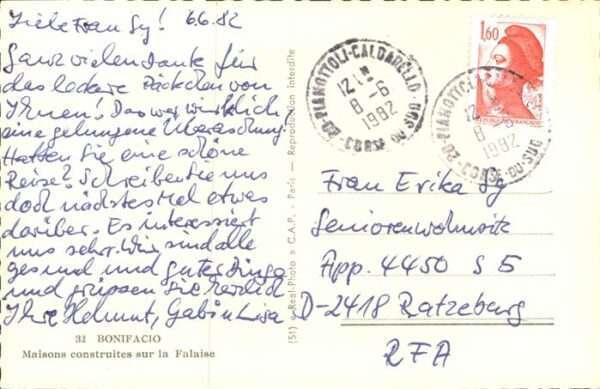 Liebe Frau Sy! 6.6.82
Ganz vielen Dank für
das leckere Päckchen von
Ihnen! Das war wirklich
eine gelungene Überraschung.
Hatten Sie eine schöne
Reise? Schreiben Sie uns
doch nächstes Mal etwas
darüber. Es interessiert
uns sehr. Wir sind alle
gesund und guter Dinge
und grüssen Sie herzlich
Ihre Helmut, Gabi u Lisa
31 BONIFACIO
Maisons construites sur la Falaise
(51) Real-Photo » C.A.P. - Paris — Reproduction interdite
20 PIANOTTOLI-CALDARELLO
12 H
8-6
1982
CORSE-DU-SUD
1,60
20 PIANOTTOLI
12
8-6
1982
CORSE-DU-SUD
Frau Erika Sy
Seniorenwohnsitz
App. 4450 S 5
D-2418 Ratzeburg
RFA